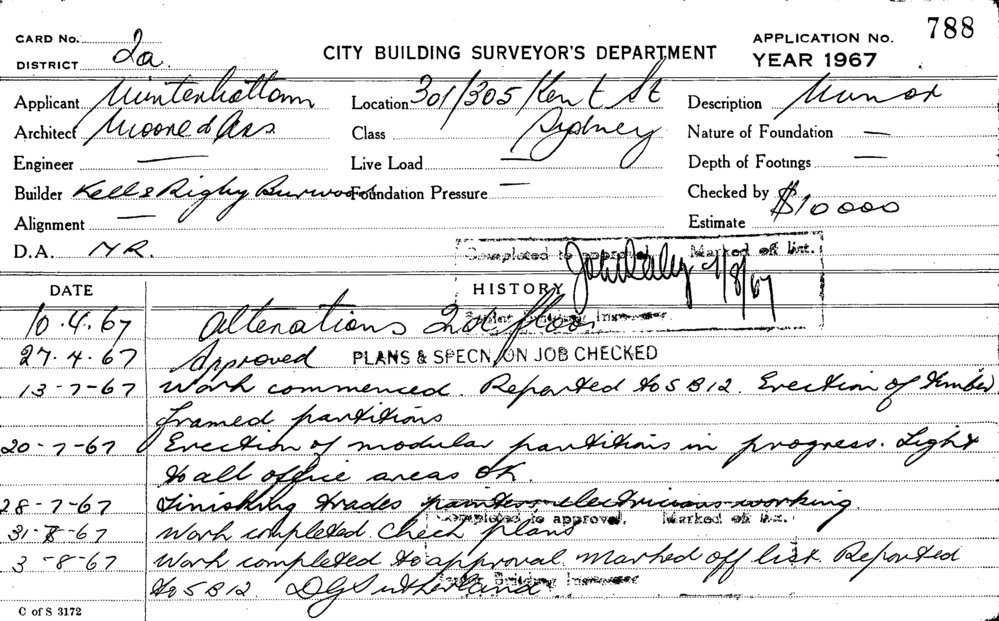 CARD No.
788
DISTRICT 2a.
CITY BUILDING SURVEYOR'S DEPARTMENT
APPLICATION No.
YEAR 1967
Applicant Winterbottom
Location 301/305 Kent St
Sydney
Description Minor
Architect Moore & Ass
Class
Nature of Foundation —
Engineer —
Live Load —
Depth of Footings —
Builder Kell & Rigby Burwood
Foundation Pressure —
Checked by
Alignment —
Estimate $10000
D.A. NR.
Completed to approval Marked off list.
1/8/67
Senior Building Inspector
DATE
HISTORY
10.4.67 Alterations 2nd floor
27.4.67 Approved PLANS & SPECN, ON JOB CHECKED
13-7-67 Work commenced. Reported to SB12. Erection of timber
framed partitions
20-7-67 Erection of modular partitions in progress. Light
to all office areas OK.
28-7-67 Finishing trades painters electricians working
Completed to approval. Marked off list.
31-7-67 Work completed. Check plans
3-8-67 Work completed to approval marked off list. Reported
to SB12. DG Sutherland
Senior Building Inspector
C of S 3172